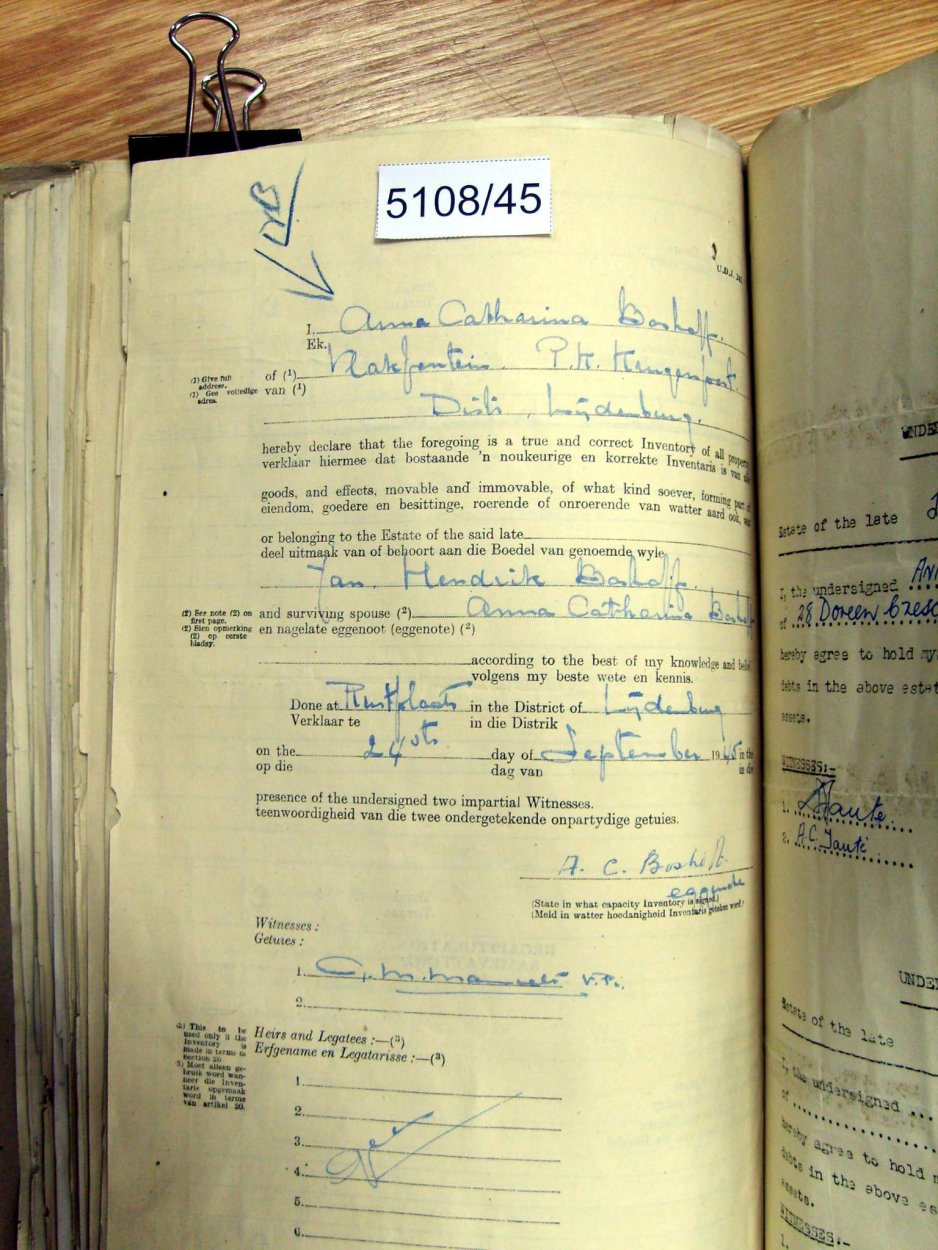 5108/45
I, Anna Catharina Boshoff.
Ek,
of (¹) Vlakfontein. P.K. Krugerspost.
van (¹)
(1) Give full address.
(1) Gee volledige adres.
Distr. Lydenburg.
hereby declare that the foregoing is a true and correct Inventory of all property
verklaar hiermee dat bostaande 'n noukeurige en korrekte Inventaris is van alle
goods, and effects, movable and immovable, of what kind soever, forming part of
eiendom, goedere en besittinge, roerende of onroerende van watter aard ook, wat
or belonging to the Estate of the said late
deel uitmaak van of behoort aan die Boedel van genoemde wyle
Jan Hendrik Boshoff.
(2) See note (2) on first page.
(2) Sien opmerking (2) op eerste bladsy.
and surviving spouse (²) Anna Catharina Boshoff
en nagelate eggenoot (eggenote) (²)
according to the best of my knowledge and belief
volgens my beste wete en kennis.
Done at Rustplaats in the District of Lydenburg
Verklaar te in die Distrik
on the 24ste day of September 1945 in the
op die dag van in die
presence of the undersigned two impartial Witnesses.
teenwoordigheid van die twee ondergetekende onpartydige getuies.
A. C. Boshoff.
eggenote
(State in what capacity Inventory is signed.)
(Meld in watter hoedanigheid Inventaris geteken word.)
Witnesses :
Getuies :
1. V.R.
2.
(3) This to be used only if the Inventory is made in terms of Section 20.
(3) Moet alleen gebruik word wanneer die Inventaris opgemaak word in terme van artikel 20.
Heirs and Legatees :—(³)
Erfgename en Legatarisse :—(³)
1.
2.
3.
4.
5.
6.
UNDE
Estate of the late
I, the undersigned
of 28 Doreen Cresc
hereby agree to hold my
debts in the above estat
assets.
WITNESSES:-
1.
2. A.C. Tauté
UNDE
Estate of the late
I, the undersigned
of
hereby agree to hold m
debts in the above es
assets.
WITNESSES:-
1.